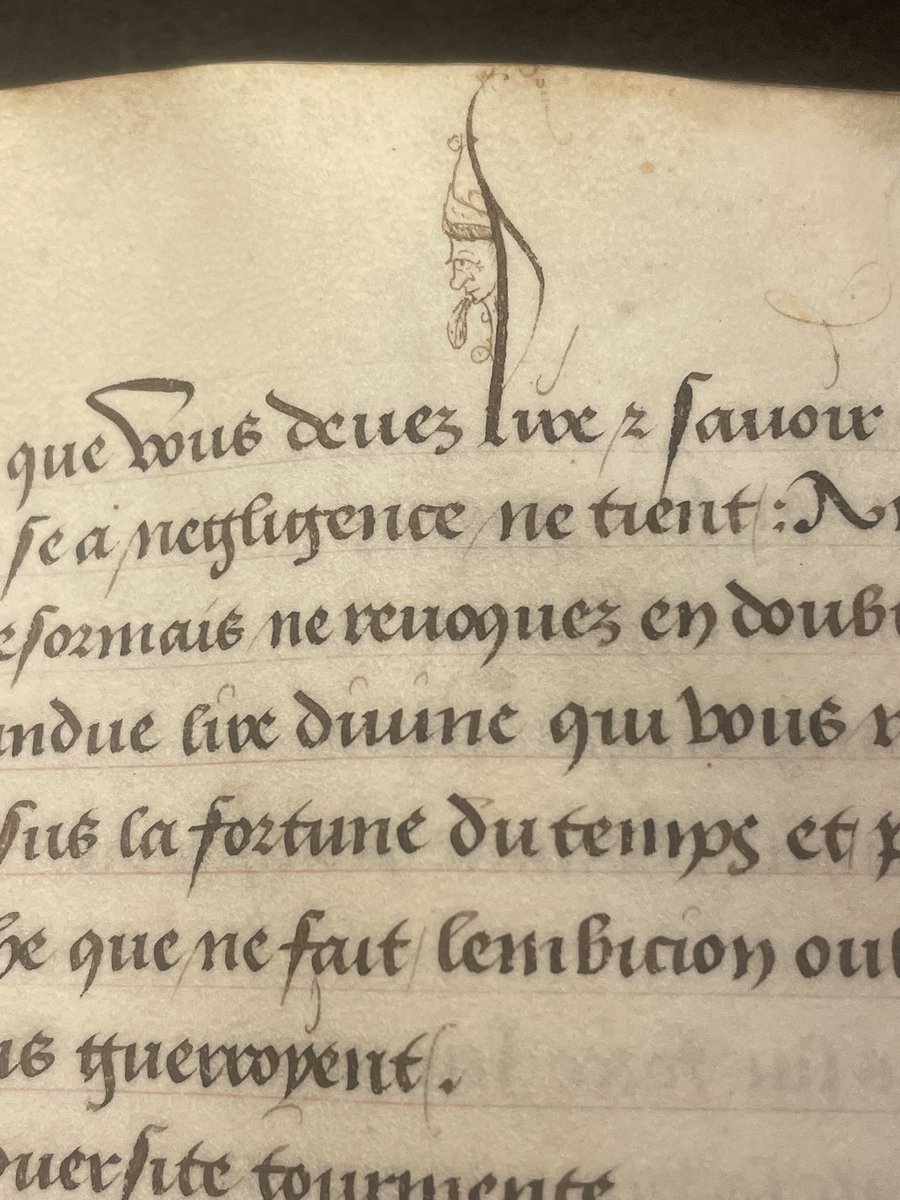 que vous deuez lire ⁊ sauoir
se a / negligence / ne tient / : N
esormais / ne reuoquez en doub
ndue lire diuine qui vous
sus la fortune du temps et p
he que / ne fait / lembicion oul
us guerroyent / .
duersite tourmente